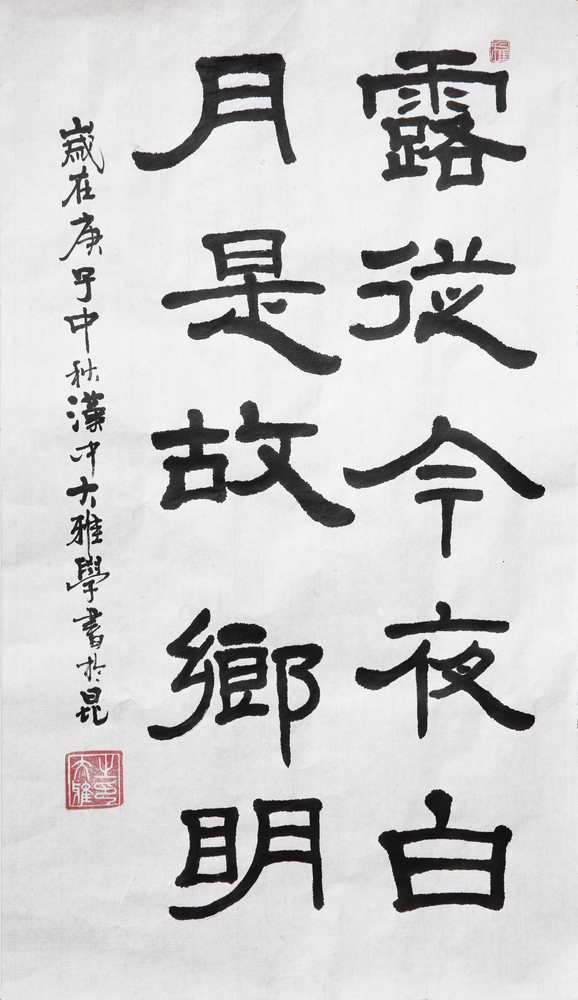 露從今夜白
月是故鄉明
歲在庚子中秋漢中大雅學書於昆